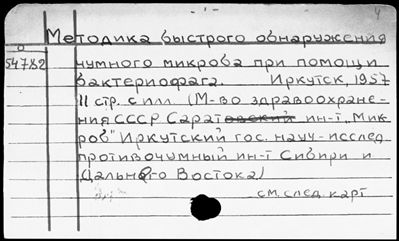 4
Методика быстрого обнаружения
54782 чумного микроба при помощи
бактериофага. Иркутск, 1957
11 стр. с илл. (М-во здравоохране-
ния СССР Саратовский ин-т „Мик-
роб" Иркутский гос. науч-исслед
противочумный ин-т Сибири и
Дальнего Востока)
см. след. карт